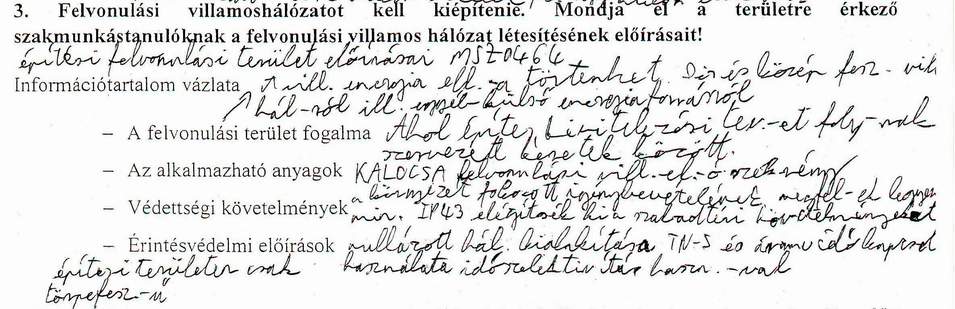 3. Felvonulási villamoshálózatot kell kiépítenie. Mondja el a területre érkező
szakmunkástanulóknak a felvonulási villamos hálózat létesítésének előírásait!
építési felvonulási terület előírásai MSZ 0464
Információtartalom vázlata vill. energia ell.-a történhet. és közép fesz. - vill
hál-ról ill. egyéb külső energiaforrásról
– A felvonulási terület fogalma Ahol építés, kivitelezési tev.-et foly-nak
szervezett keretek között.
– Az alkalmazható anyagok KALOCSA felvonulási vill. el. ó szekrény
a környezet fokozott igénybevételének megfel-ek legyen
– Védettségi követelmények min. IP43 elégítsék ki a szabadtéri követelményeket
– Érintésvédelmi előírások nullázott hál. kialakítása TN-S és áramvédőkapcsoló
építési területen csak használata időszelektív haszn. -val
törpefesz.-ű